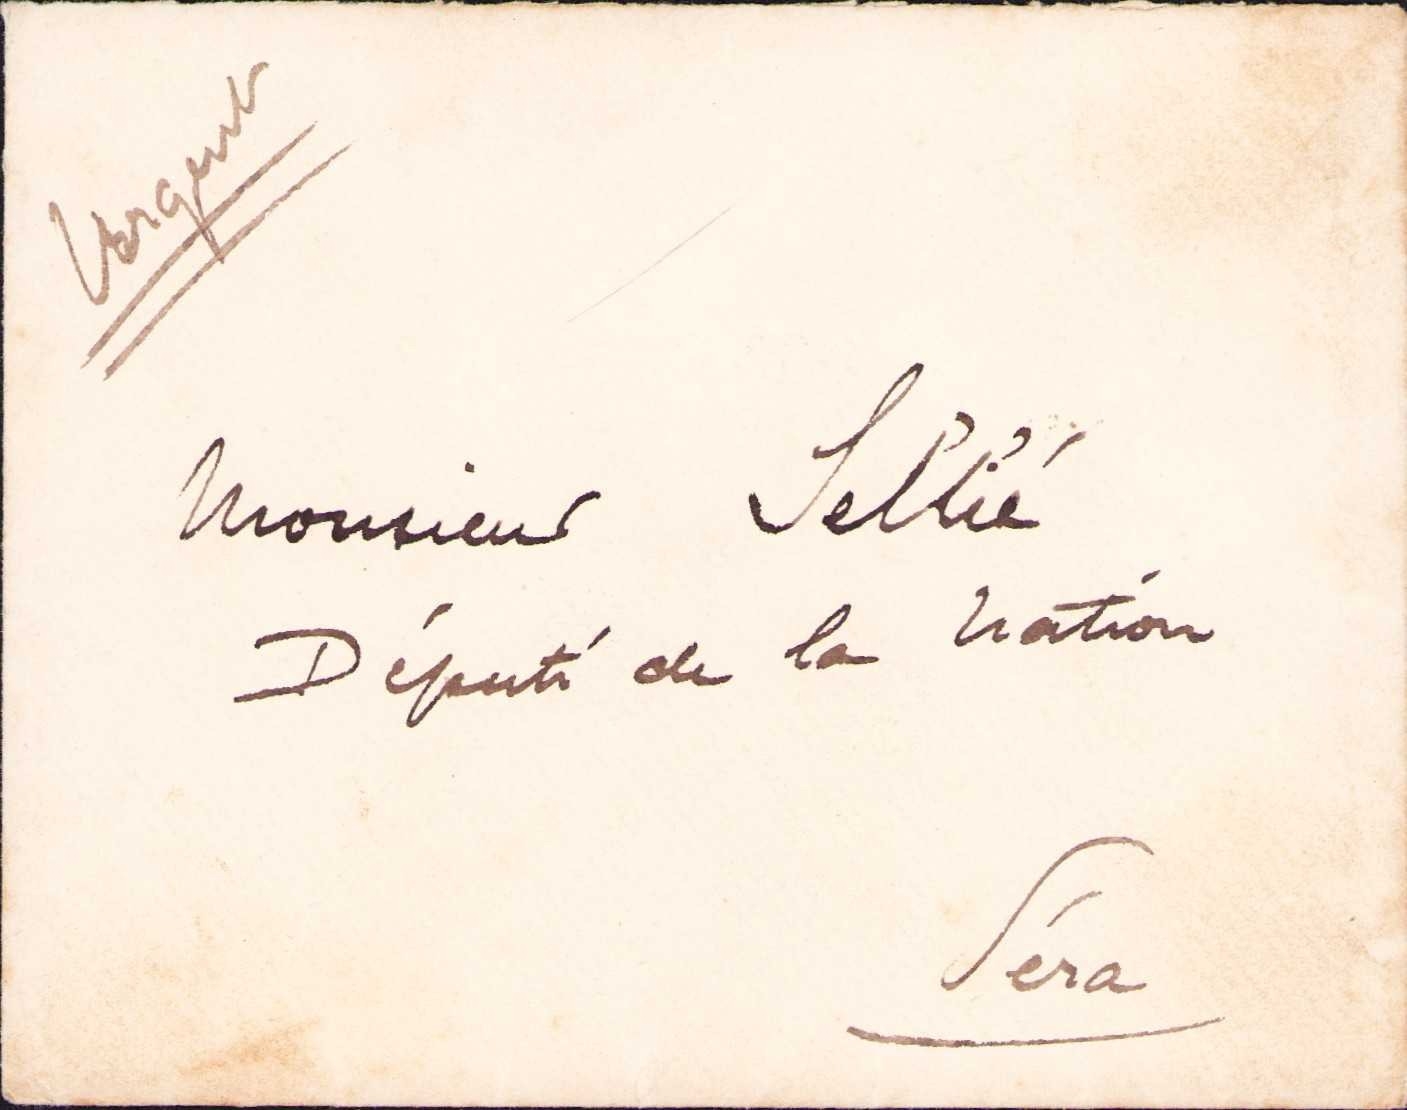 Urgent
Monsieur Sellié
Député de la Nation
Péra